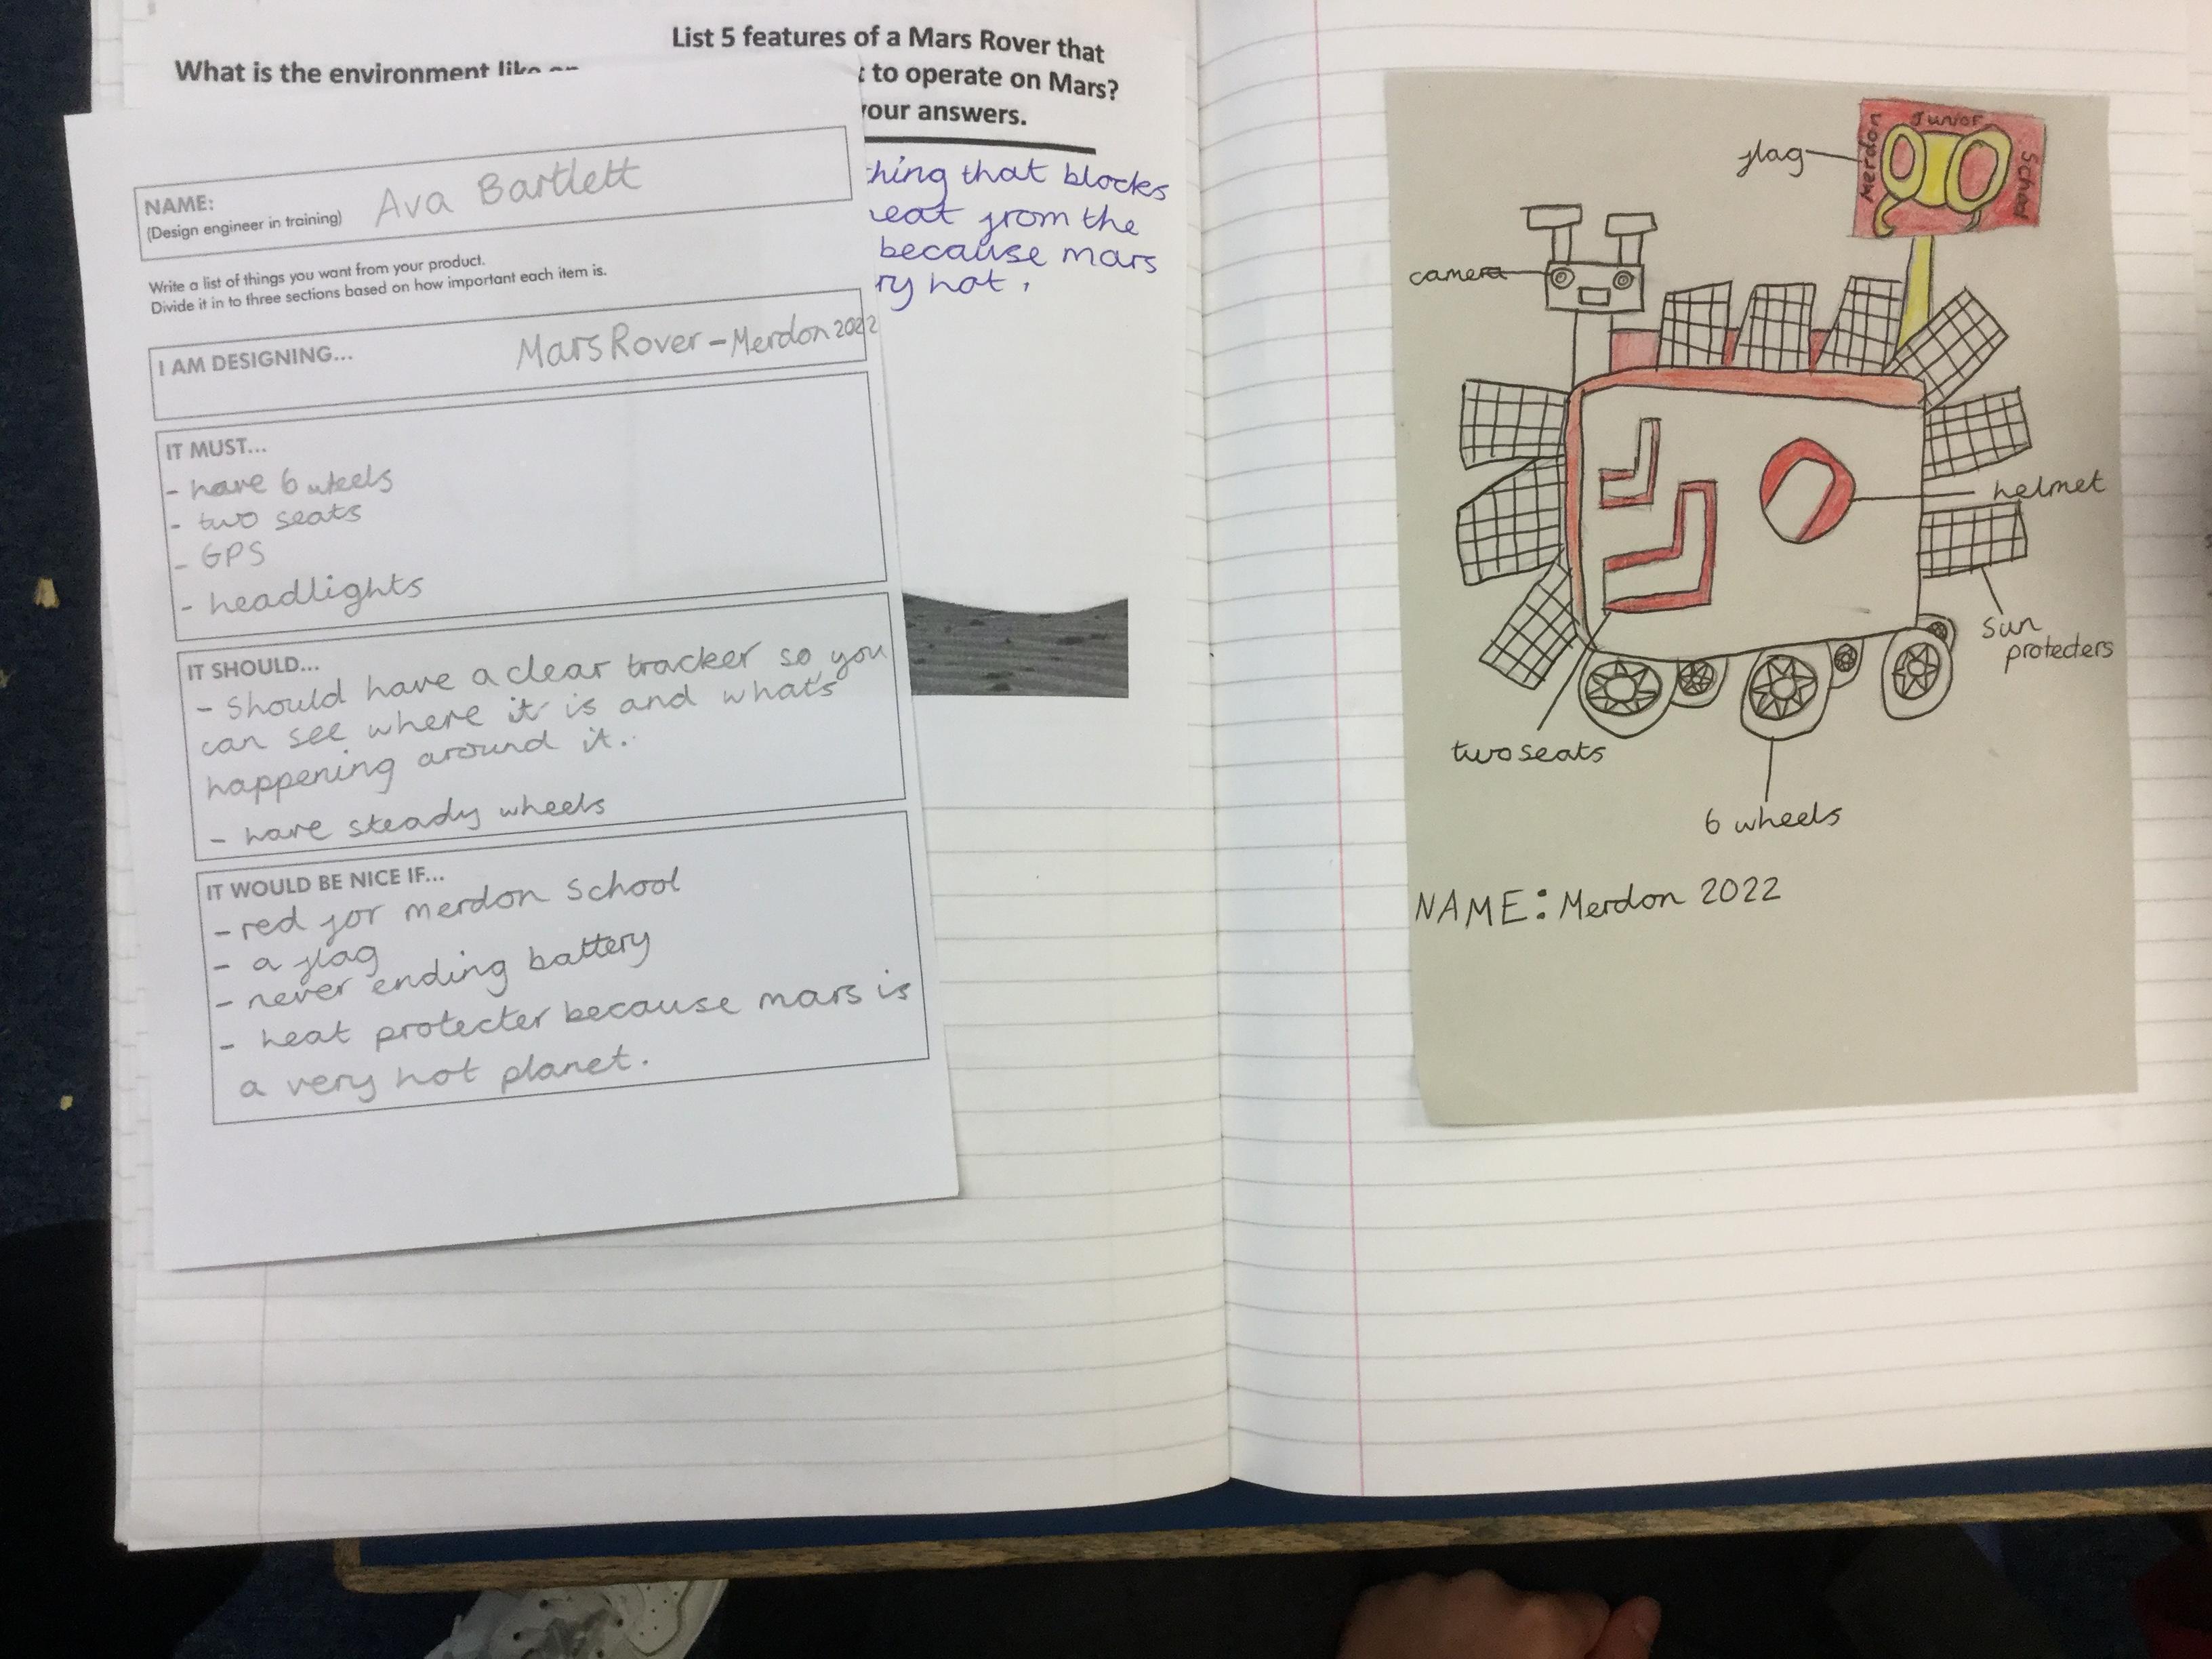 List 5 features of a Mars Rover that
What is the environment like
to operate on Mars?
your answers.
thing that blocks
heat from the
because mars
hot.
NAME:
(Design engineer in training)
Ava Bartlett
Write a list of things you want from your product.
Divide it in to three sections based on how important each item is.
I AM DESIGNING...
Mars Rover - Merdon 2022
IT MUST...
- have 6 wheels
- two seats
- GPS
- headlights
IT SHOULD...
- Should have a clear tracker so you
can see where it is and what's
happening around it.
- have steady wheels
IT WOULD BE NICE IF...
- red for merdon School
- a flag
- never ending battery
- heat protecter because mars is
a very hot planet.
Merdon
Junior
School
flag
camera
helmet
sun
protecters
two seats
6 wheels
NAME: Merdon 2022